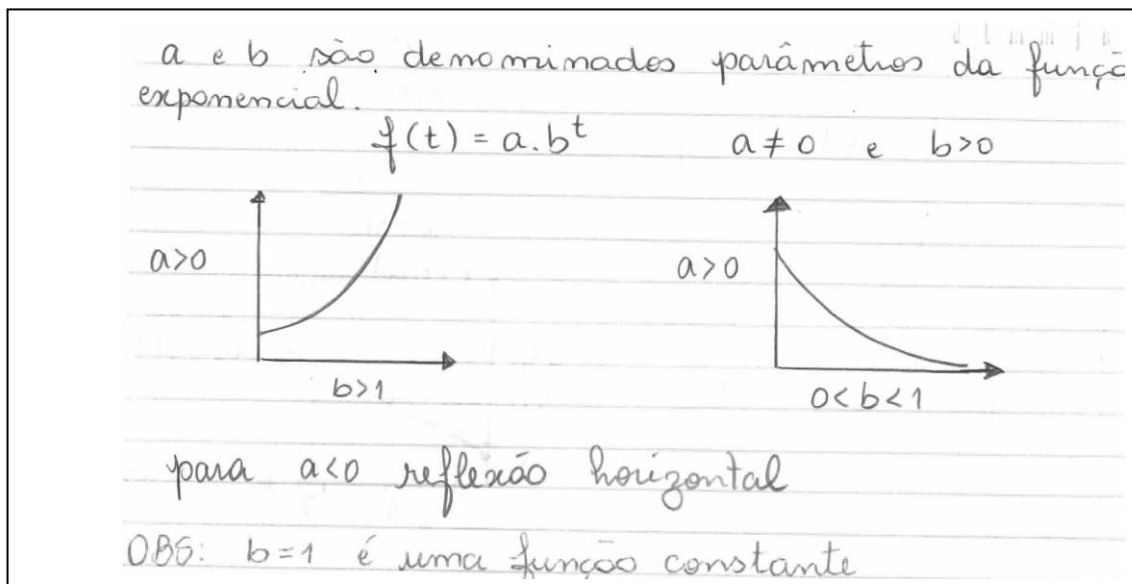 a e b são denominados parâmetros da funçã
exponencial.
f(t) = a.b^t a ≠ 0 e b>0
a>0
b>1
a>0
0<b<1
para a<0 reflexão horizontal
OBS: b=1 é uma função constante